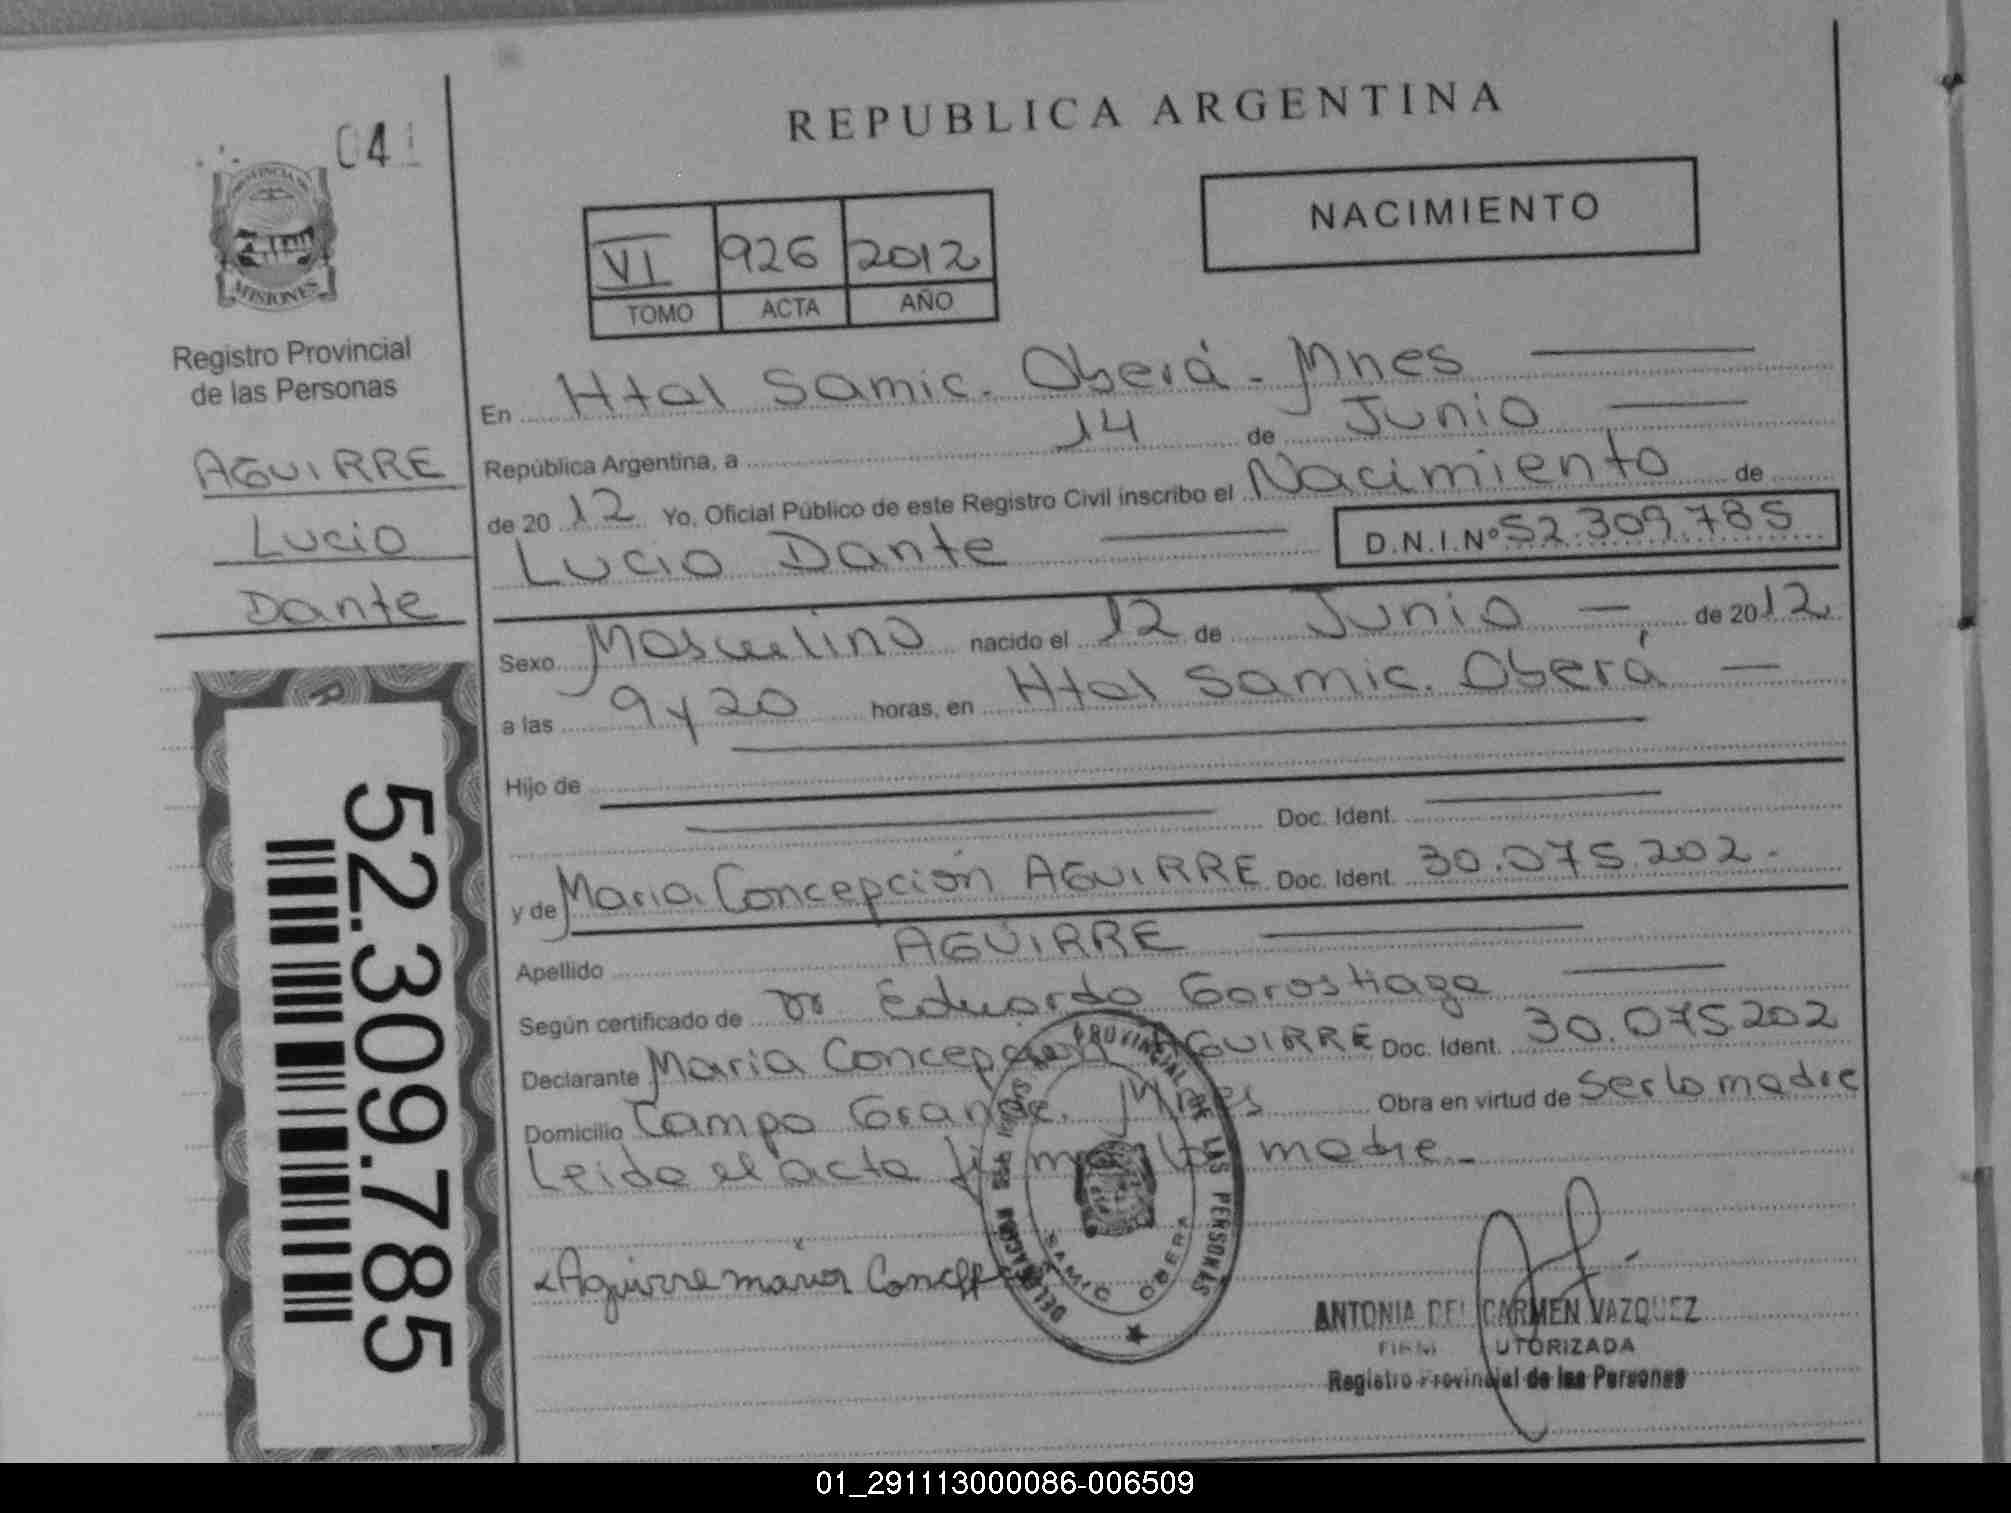 REPUBLICA ARGENTINA
04
PROVINCIA DE
MISIONES
Registro Provincial
de las Personas
AGUIRRE
Lucio
Dante
52.309.785
NACIMIENTO
VI 926 2012
TOMO ACTA AÑO
En Htal Samic. Oberá - Mnes
República Argentina, a 14 de Junio
de 20 12 Yo, Oficial Público de este Registro Civil inscribo el Nacimiento de
Lucio Dante D.N.I.Nº 52.309.785
Sexo Masculino nacido el 12 de Junio de 20 12
a las 9 y 20 horas, en Htal Samic. Oberá
Hijo de
Doc. Ident.
y de Maria Concepción AGUIRRE Doc. Ident. 30.075.202.
Apellido AGUIRRE
Según certificado de Dr Eduardo Gorostiaga
Declarante Maria Concepcion AGUIRRE Doc. Ident. 30.075.202
Domicilio Campo Grande. Mnes Obra en virtud de Ser la madre
Leida el acta firma la madre
PROVINCIAL DE LAS PERSONAS
SAMIC OBERA
Aguirre maria
ANTONIA DEL CARMEN VAZQUEZ
FIRMA AUTORIZADA
Registro Provincial de las Personas
01_291113000086-006509